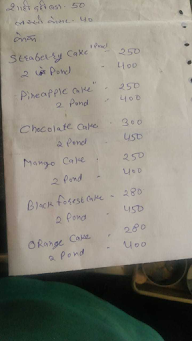 - 50
- 40
Straberry Cake 1 Pond - 250
2 Pond - 400
Pineapple Cake - 250
2 Pond - 400
Chocolate Cake - 300
2 Pond - 450
Mango Cake - 250
2 Pond - 400
Black forest Cake - 280
2 Pond - 450
Orange Cake - 280
2 Pond - 400